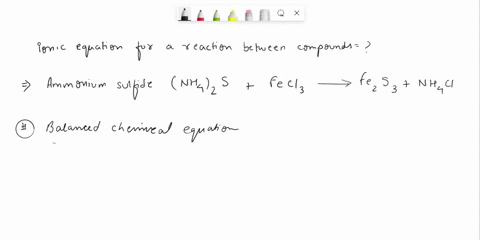 ionic equation for a reaction between compounds = ?
⇒ Ammonium sulfide (NH₄)₂ S + FeCl₃ ⟶ Fe₂S₃ + NH₄Cl
Balanced chemical equation